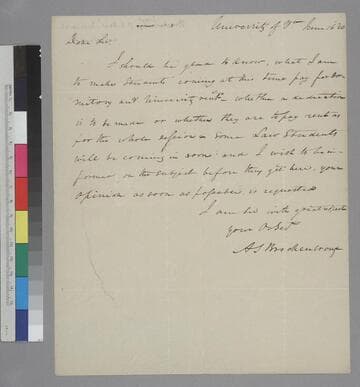 University of Va June 1830
Dear Sir
I should be glad to know, what I am
to make Students coming at this time pay for Dor-
mitory and University rent - whether a deduction
is to be made or whether they are to pay rent as
for the whole session - some Law Students
will be coming in soon and I wish to be in-
formed on the subject before they get here, your
opinion as soon as possible is requested
I am Sir with great respect
Your Ob Set
A S Brockenbrough